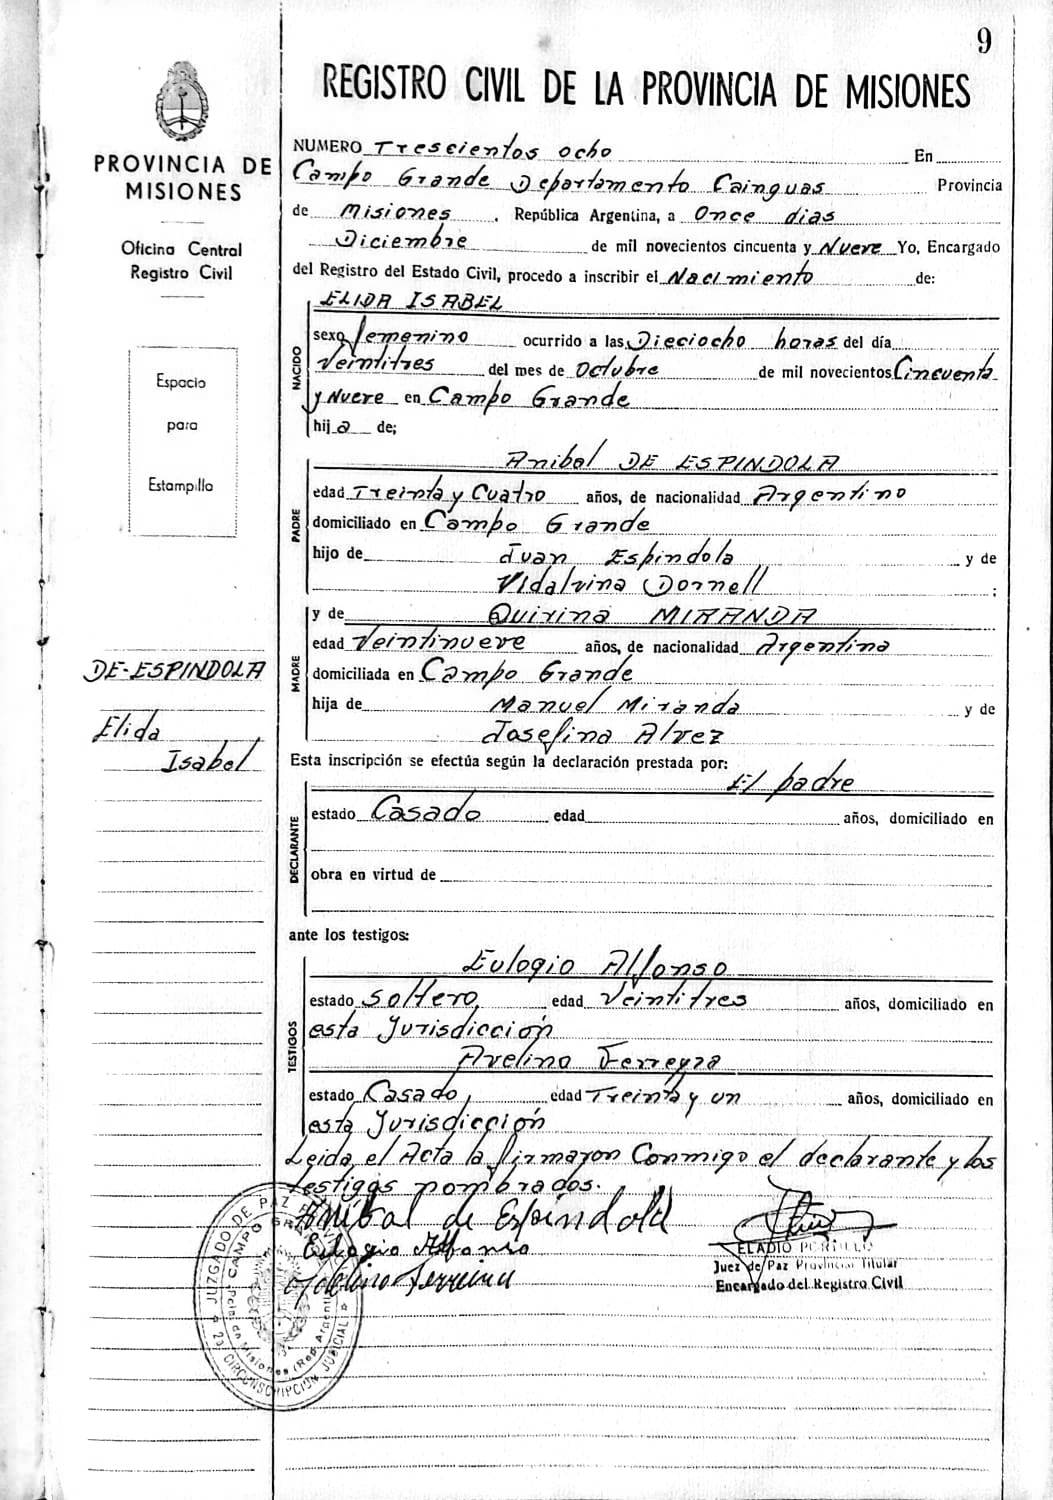 9
REGISTRO CIVIL DE LA PROVINCIA DE MISIONES
PROVINCIA DE
MISIONES
Oficina Central
Registro Civil
Espacio
para
Estampilla
DE-ESPINDOLA
Elida
Isabel
NUMERO Trescientos ocho En
Campo Grande Departamento Cainguas Provincia
de Misiones, República Argentina, a Once dias
Diciembre de mil novecientos cincuenta y Nueve Yo, Encargado
del Registro del Estado Civil, procedo a inscribir el Nacimiento de:
NACIDO
ELIDA ISABEL
sexo femenino ocurrido a las Dieciocho horas del día
Veintitres del mes de Octubre de mil novecientos Cincuenta
y Nueve en Campo Grande
hija de;
PADRE
Anibal DE ESPINDOLA
edad Treinta y Cuatro años, de nacionalidad Argentino
domiciliado en Campo Grande
hijo de Juan Espindola y de
Vidalvina Dornell ;
MADRE
y de Quirina MIRANDA
edad Veintinueve años, de nacionalidad Argentina
domiciliada en Campo Grande
hija de Manuel Miranda y de
Josefina Alvez
Esta inscripción se efectúa según la declaración prestada por:
DECLARANTE
El padre
estado Casado edad años, domiciliado en
obra en virtud de
ante los testigos:
TESTIGOS
Eulogio Alfonso
estado soltero, edad Veintitres años, domiciliado en
esta Jurisdicción
Avelino Ferreyra
estado Casado, edad Treinta y un años, domiciliado en
esta Jurisdicción
Leida el Acta la firmaron Conmigo el declarante y los
testigos nombrados.
Anibal de Espindola
Eulogio Alfonso
Ferreira
ELADIO PORTILLO
Juez de Paz Provincial Titular
Encargado del Registro Civil
JUZGADO DE PAZ
CAMPO GRANDE
Misiones (Rep. Argentina)
CIRCUNSCRIPCION JUDICIAL